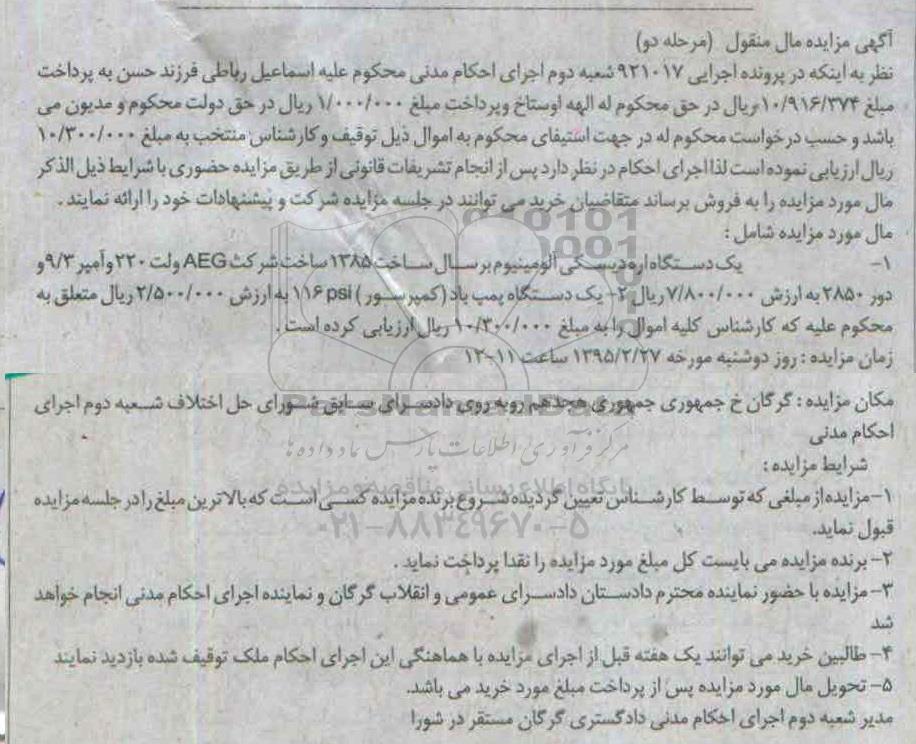 آگهی مزایده مال منقول (مرحله دو)
نظر به اینکه در پرونده اجرایی ۹۲۱۰۱۷ شعبه دوم اجرای احکام مدنی محکوم علیه اسماعیل رباطی فرزند حسن به پرداخت
مبلغ ۱۰/۹۱۶/۳۷۴ ریال در حق محکوم له الهه اوستاخ وپرداخت مبلغ ۱/۰۰۰/۰۰۰ ریال در حق دولت محکوم و مدیون می
باشد و حسب درخواست محکوم له در جهت استیفای محکوم به اموال ذیل توقیف و کارشناس منتخب به مبلغ ۱۰/۳۰۰/۰۰۰
ریال ارزیابی نموده است لذا اجرای احکام در نظر دارد پس از انجام تشریفات قانونی از طریق مزایده حضوری با شرایط ذیل الذکر
مال مورد مزایده را به فروش برساند متقاضیان خرید می توانند در جلسه مزایده شرکت و پیشنهادات خود را ارائه نمایند .
مال مورد مزایده شامل :
۱- یک دستگاه اره دیسکی آلومینیوم بر سال ساخت ۱۳۸۵ ساخت شرکت AEG ولت ۲۲۰ وآمپر ۹/۳ و
دور ۲۸۵۰ به ارزش ۷/۸۰۰/۰۰۰ ریال ۲- یک دستگاه پمپ باد (کمپرسور ) ۱۱۶ psi به ارزش ۲/۵۰۰/۰۰۰ ریال متعلق به
محکوم علیه که کارشناس کلیه اموال را به مبلغ ۱۰/۳۰۰/۰۰۰ ریال ارزیابی کرده است .
زمان مزایده : روز دوشنبه مورخه ۱۳۹۵/۲/۲۷ ساعت ۱۱-۱۲
مکان مزایده : گرگان خ جمهوری جمهوری هجدهم روبه روی دادسرای سابق شورای حل اختلاف شعبه دوم اجرای
احکام مدنی
شرایط مزایده :
۱-مزایده از مبلغی که توسط کارشناس تعیین گردیده شروع برنده مزایده کسی است که بالاترین مبلغ را در جلسه مزایده
قبول نماید.
۲- برنده مزایده می بایست کل مبلغ مورد مزایده را نقدا پرداخت نماید .
۳- مزایده با حضور نماینده محترم دادستان دادسرای عمومی و انقلاب گرگان و نماینده اجرای احکام مدنی انجام خواهد
شد
۴- طالبین خرید می توانند یک هفته قبل از اجرای مزایده با هماهنگی این اجرای احکام ملک توقیف شده بازدید نمایند
۵- تحویل مال مورد مزایده پس از پرداخت مبلغ مورد خرید می باشد.
مدیر شعبه دوم اجرای احکام مدنی دادگستری گرگان مستقر در شورا
مرکز فرآوری اطلاعات پارس نماد داده ها
پایگاه اطلاع رسانی مناقصه و مزایده
۰۲۱-۸۸۳۴۹۶۷۰-۵